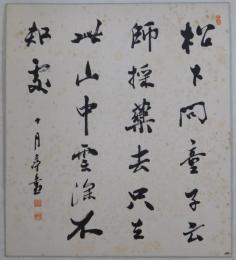 松下問童子云
師採藥去只在
此山中雲深不
知處
十月書